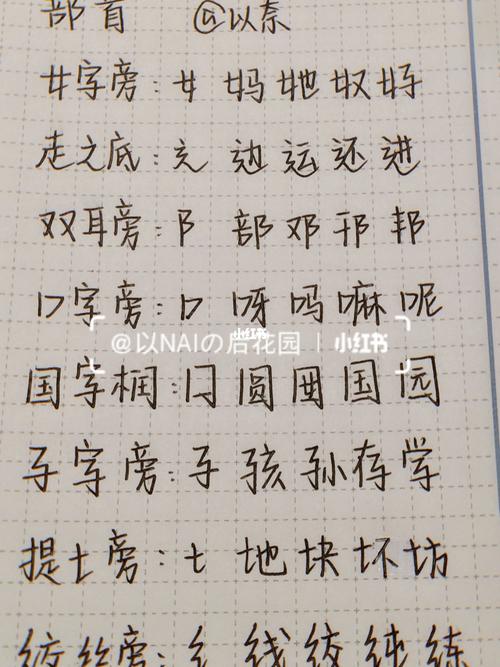 部首 @以奈
女字旁:女 妈 她 奴 好
走之底:辶 边 运 还 进
双耳旁:阝 部 邓 邗 邦
口字旁:口 呀 吗 嘛 呢
小红书
@以NAIの后花园 | 小红书
国字框:囗 圆 国 园
子字旁:子 孩 孙 存 学
提土旁:土 地 块 坏 坊
绞丝旁:纟 线 绞 纯 练